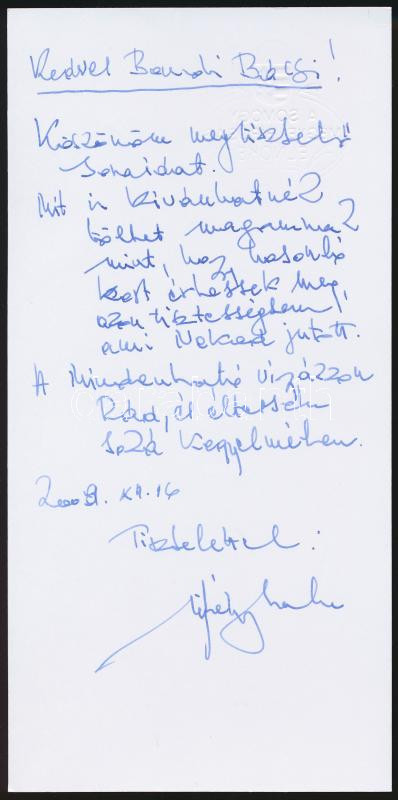 Kedves Bandi Bácsi!
Köszönöm megtisztelő
soraidat.
Mit is kívánhatnék
többet magamnak
mint, hogy hasonló
kort érhessek meg,
azon tisztességben,
ami Neked jutott.
A Mindenható vigyázzon
Rád, és éltessen
száz kegyelmében.
2009. XII. 16
Tisztelettel: